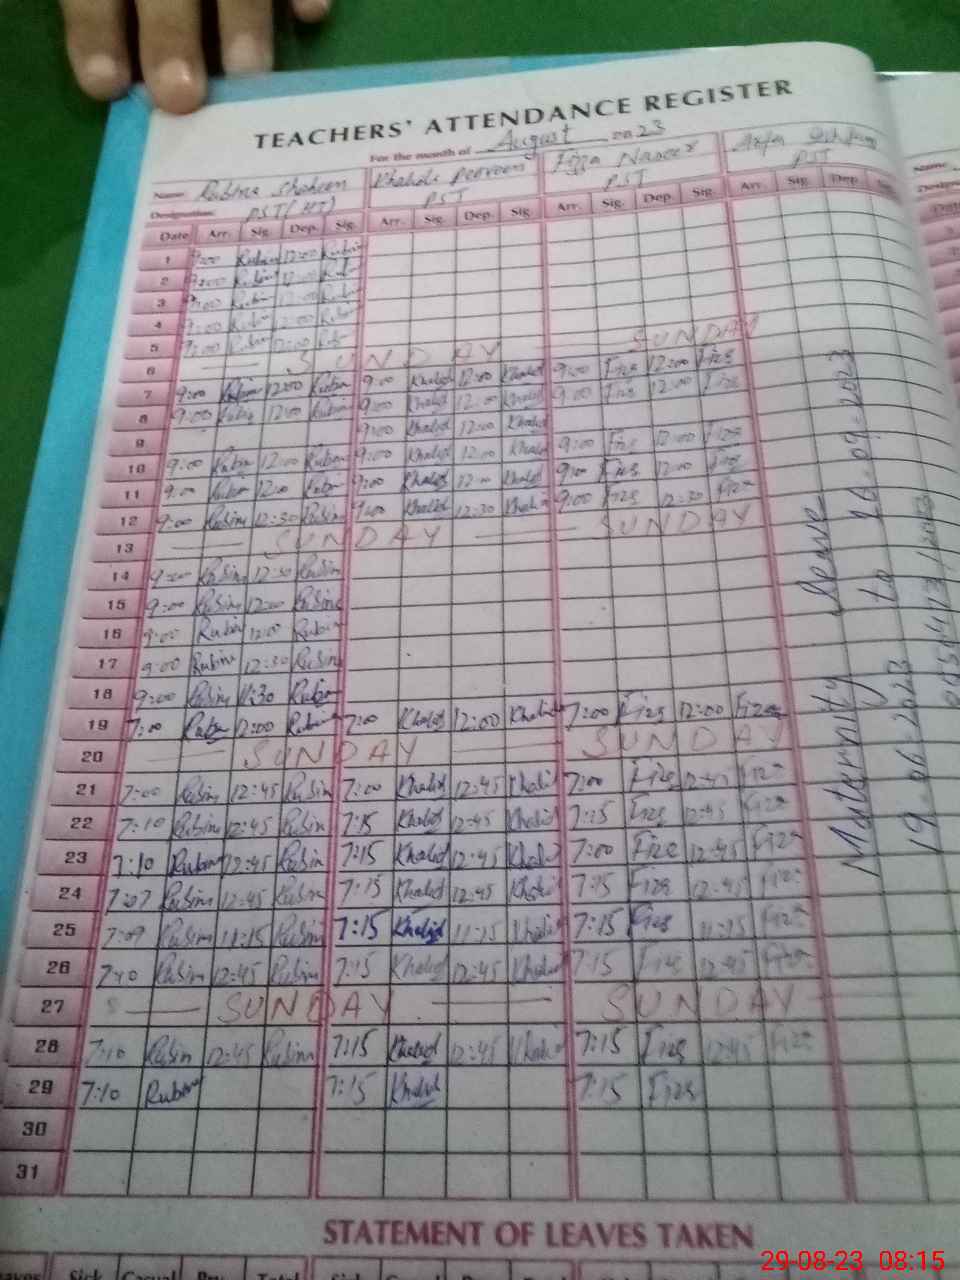 TEACHERS' ATTENDANCE REGISTER
For the month of August 2023
Name: Rubina Shaheen Khalida Perveen Fizza Naseer Arfa
Designation: PST (HT) PST PST PST
Date Arr. Sig. Dep. Sig. Arr. Sig. Dep. Sig. Arr. Sig. Dep. Sig. Arr. Sig. Dep.
1 9:00 Rubina 12:00 Rubina
2 9:00 Rubina 12:00 Rubin
3 9:00 Rubin 12:00 Rubin
4 9:00 Rubin 12:00 Rubin
5 9:00 Rubin 12:00 Rub
6 SUNDAY SUNDAY
7 9:00 Rubina 12:00 Rubina 9:00 Khalid 12:00 Khalid 9:00 Fizs 12:00 Fizs
8 9:00 Rubin 12:00 Rubin 9:00 Khalid 12:00 Khalid 9:00 Fizs 12:00 Fizs
9 9:00 Khalid 12:00 Khalid
10 9:00 Rubin 12:00 Rubina 9:00 Khalid 12:00 Khalid 9:00 Fizs 12:00 Fizs
11 9:00 Rubin 12:00 Rubin 9:00 Khalid 12:00 Khalid 9:00 Fizs 12:00 Fizs
12 9:00 Rubina 12:30 Rubina 9:00 Khalid 12:30 Khalid 9:00 Fizs 12:30 Fizs
13 SUNDAY SUNDAY
14 9:00 Rubina 12:30 Rubin
15 9:00 Rubina 12:00 Rubina
16 9:00 Rubin 12:00 Rubin
17 9:00 Rubina 12:30 Rubina
18 9:00 Rubin 11:30 Rubin
19 7:00 Rubin 12:00 Rubina 7:00 Khalid 12:00 Khalid 7:00 Fizs 12:00 Fizza
20 SUNDAY SUNDAY
21 7:00 Rubin 12:45 Rubin 7:00 Khalid 12:45 Khalid 7:00 Fizs 12:45 Fizza
22 7:10 Rubina 12:45 Rubin 7:15 Khalid 12:45 Khalid 7:15 Fizs 12:45 Fizza
23 7:10 Rubina 12:45 Rubin 7:15 Khalid 12:45 Khalid 7:00 Fizs 12:45 Fizza
24 7:07 Rubina 12:45 Rubin 7:15 Khalid 12:45 Khalid 7:15 Fizs 12:45 Fizza
25 7:09 Rubina 11:15 Rubina 7:15 Khalid 11:15 Khalid 7:15 Fizs 11:15 Fizza
26 7:10 Rubin 12:45 Rubin 7:15 Khalid 12:45 Khalid 7:15 Fizs 12:45 Fizza
27 SUNDAY SUNDAY
28 7:10 Rubin 12:45 Rubina 7:15 Khalid 12:45 Khalid 7:15 Fizs 12:45 Fizza
29 7:10 Rubina 7:15 Khalid 7:15 Fizs
30
31
Maiternity Leave
19.06.2023 to 16.09.2023
STATEMENT OF LEAVES TAKEN
Sick Casual Total
29-08-23 08:15